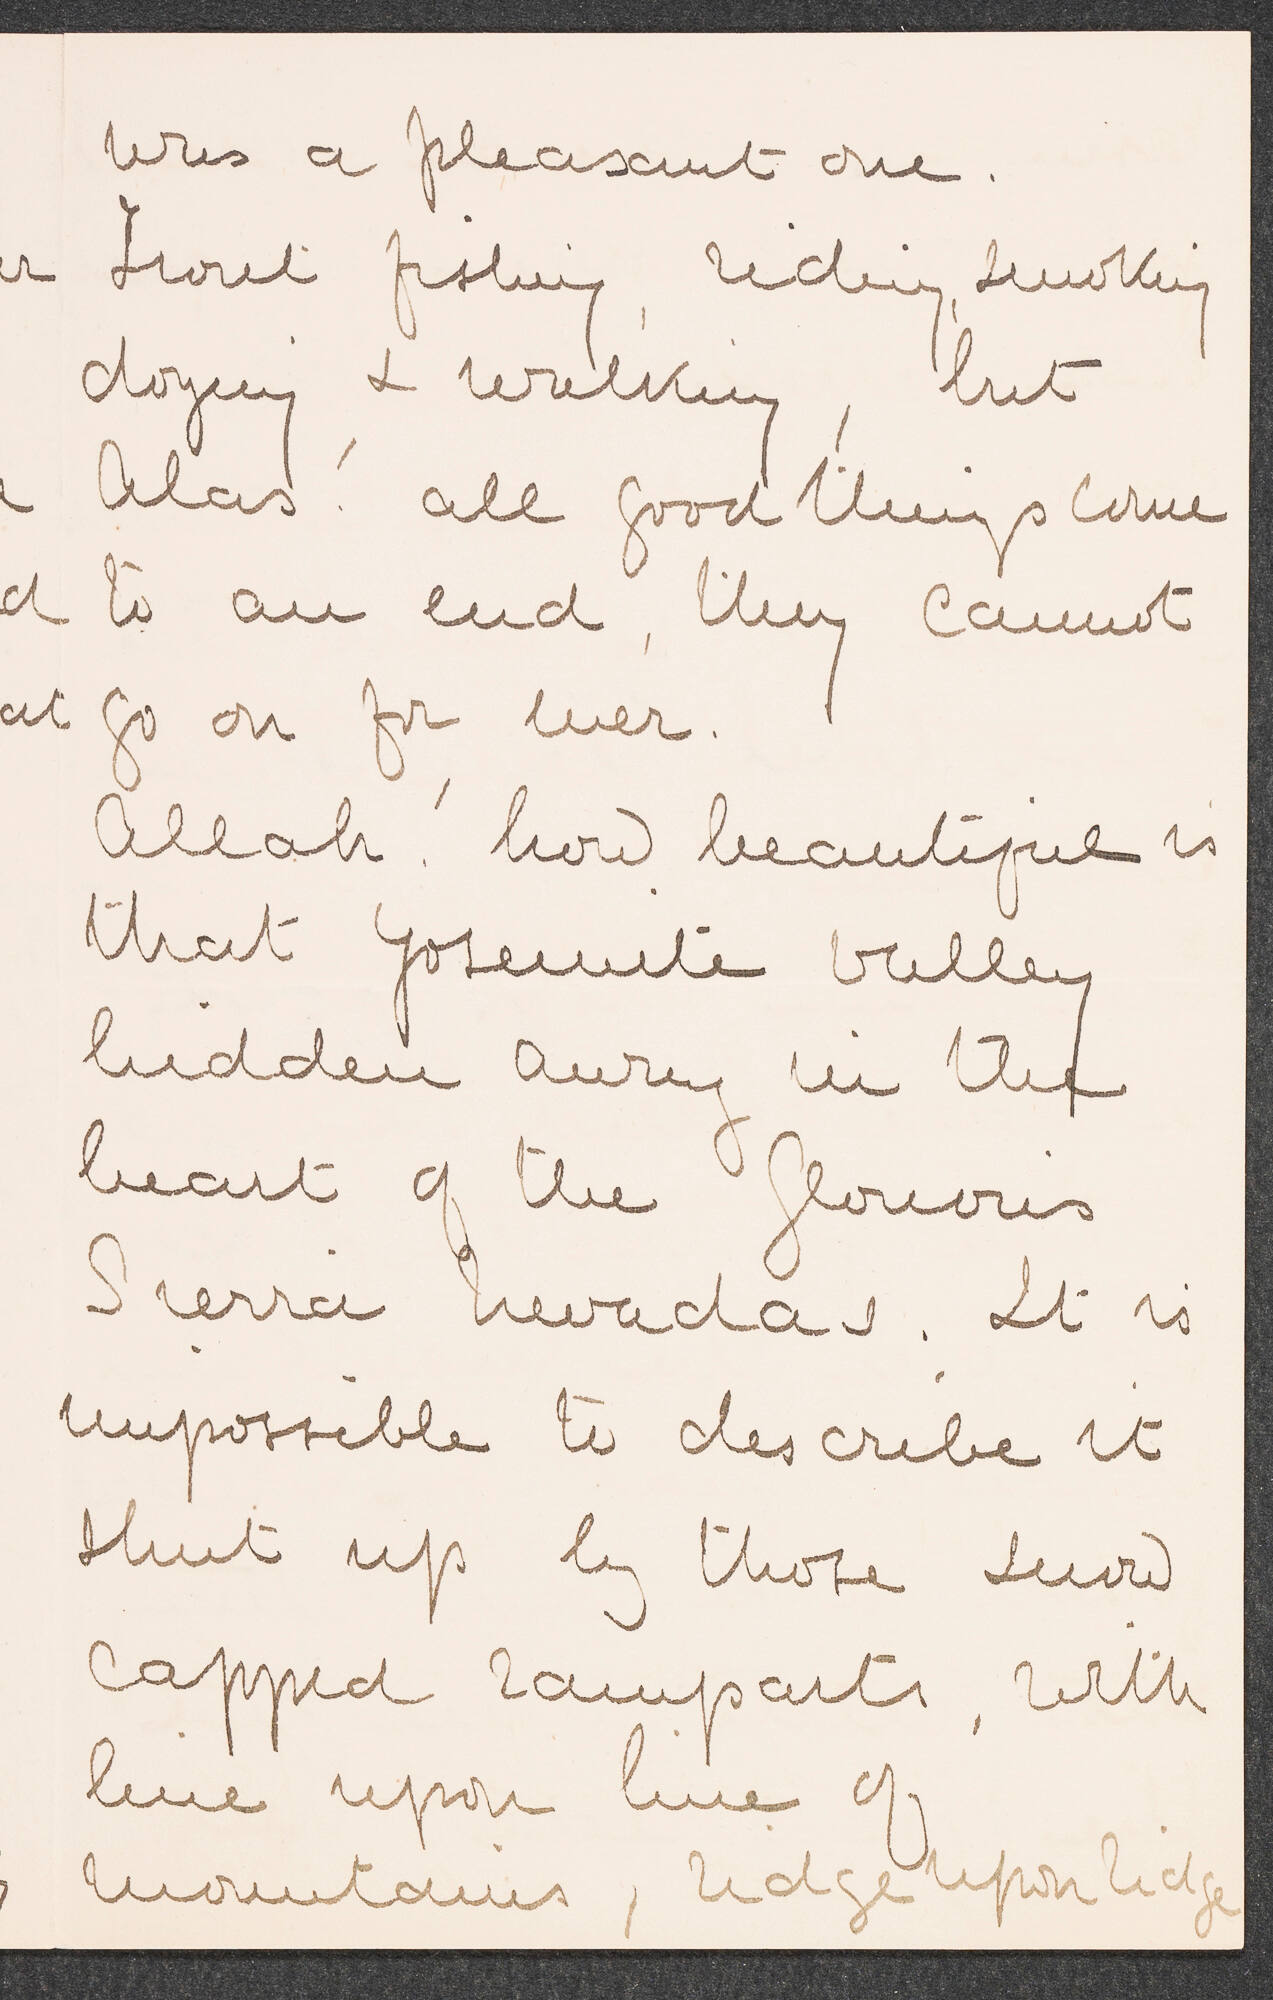 was a pleasant one.
Trout fishing, riding, smoking
dozing & walking, but
Alas! all good things come
to an end, they cannot
go on for ever.
Allah! how beautiful is
that Yosemite valley
hidden away in the
heart of the Glorious
Sierra Nevadas. It is
impossible to describe it
shut up by those snow
capped ramparts, with
line upon line of
mountains, ridge upon ridge